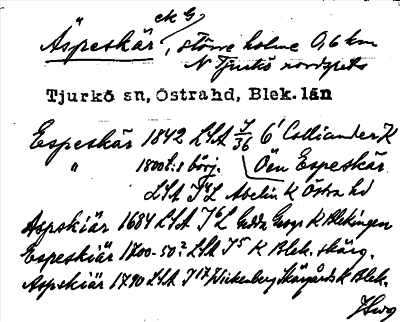 ek G
Äspeskär, större holme 0,6 km
N Tjurkö nordspets
Tjurkö sn, Östrahd, Blek. län
Espeskär 1842 LSA 7/36 6 Colliander K
" 1800t:s börj. Ön Espeskär
LSA Abelin K Östra hd
Aspskiär 1684 LSA J6L Gedda Geogr K Blekingen
Espeskiär 1700-50? LSA J5 K Blek. skärg.
Aspskiär 1790 LSA J17 Wickenberg Skärgårds K Blek.